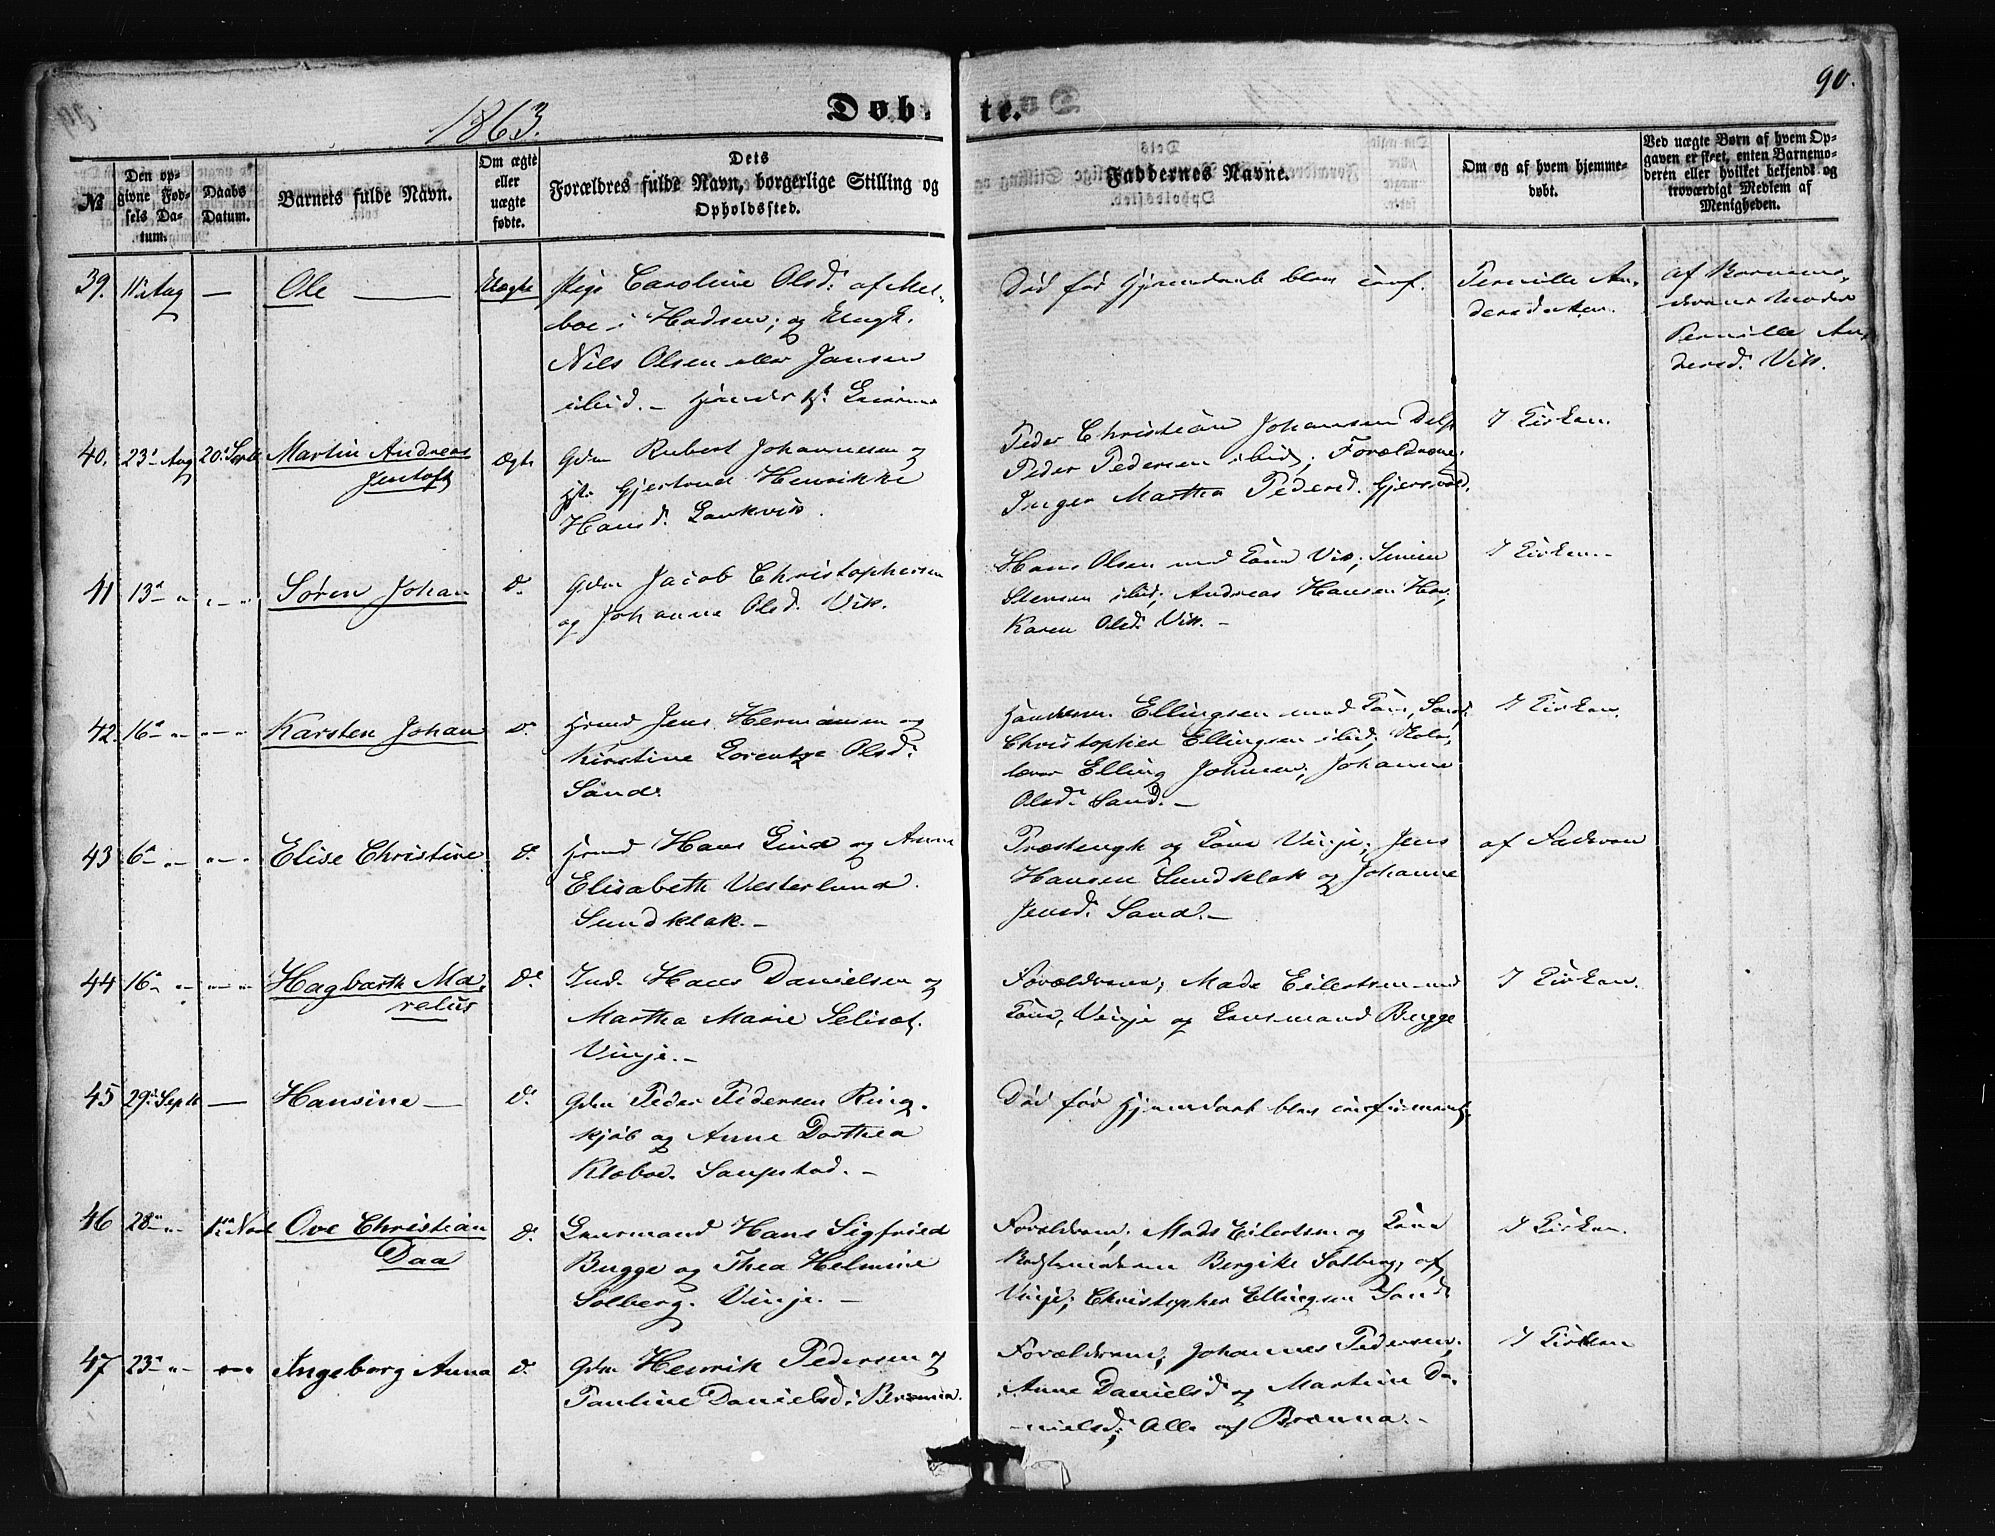 90.
1863.
Døb- te.
№
Den opgivne Fødsels Datum.
Daabs Datum.
Barnets fulde Navn.
Om ægte eller uægte fødte.
Dets Forældres fulde Navn, borgerlige Stilling og Opholdssted.
Faddernes Navne.
Om og af hvem hjemmedøbt.
Ved uægte Børn af hvem Opgaven er skeet, enten Barnemoderen eller hvilket bekjendt og troværdigt Medlem af Menigheden.
39. 11te Aug — Ole — Uægte
Pige Caroline Olsd: af Mel-
boe i Hadsen; og Ungk.
Nils Olsen eller Jansen
ibid. —
Død før Hjemdaab blev conf.
Pernille An-
dersdatter.
af Barnemo-
derens Moder
Pernille An-
dersd: Vik.
40. 23d Aug 20d Septb Martin Andreas
Jentoft
Ægte
Gdm Rubert Johannesen og
H: Gjertrud Henrikke
Hansd.
Peder Christian Johansen
Peder Pedersen ibid; Forældrene;
Inger Martha Pedersd.
I Kirken.
41 13d " " " — " Søren Johan d.
Gdm Jacob Christophersen
og Johanne Olsd. Vik.
Hans Olsen med Kone Vik; Simen
Stensen ibid; Andreas Hansen
Karen Olsd: Vik. —
I Kirken. —
42. 16d " " " — " Karsten Johan d.
Hmd Jens Hermansen og
Kirstine Lorentze Olsd:
Sand.
Ellingsen med Kone, Sand;
Christopher Ellingsen ibid;
Elling Johnsen; Johanne
Olsd. Sand. —
I Kirken.
43 6d " " " — " Elise Christine d.
Hmd Hans Lind og Anne
Elisabeth Vesterlund.
Sundklak. —
Kone Vinje; Jens
Hansen Sundklak og Johanne
Jensd. Sand. —
af Faderen
44 16d " " " — " Hagbarth Ma-
relius
d.
Ind. Hans Danielsen og
Martha Marie
Vinje. —
Forældrene; Mads Eilertsen med
Kone, Vinje og Lensmand Bugge
I Kirken.
45 29d Septb — Hansine — d.
Gdm Peder Pedersen Ring-
kjøb og Anne Dorthea
Klæboe.
Død før Hjemdaab blev confirmeret;
46 28d " " 1ste Novb Ove Christian
Daa
d.
Lensmand Hans Sigfried
Bugge og Thea Helmine
Solberg. Vinje. —
Forældrene; Mads Eilertsen og Kone
Bergike Solberg, af
Vinje; Christopher Ellingsen Sand.
I Kirken.
47 23d " " " — " Ingeborg Anna d.
Gdm Henrik Pedersen og
Pauline Danielsd: Brenna.
Forældrene; Johannes Pedersen;
Anne Danielsd og Martine Da-
nielsd; Alle af Brenna. —
I Kirken